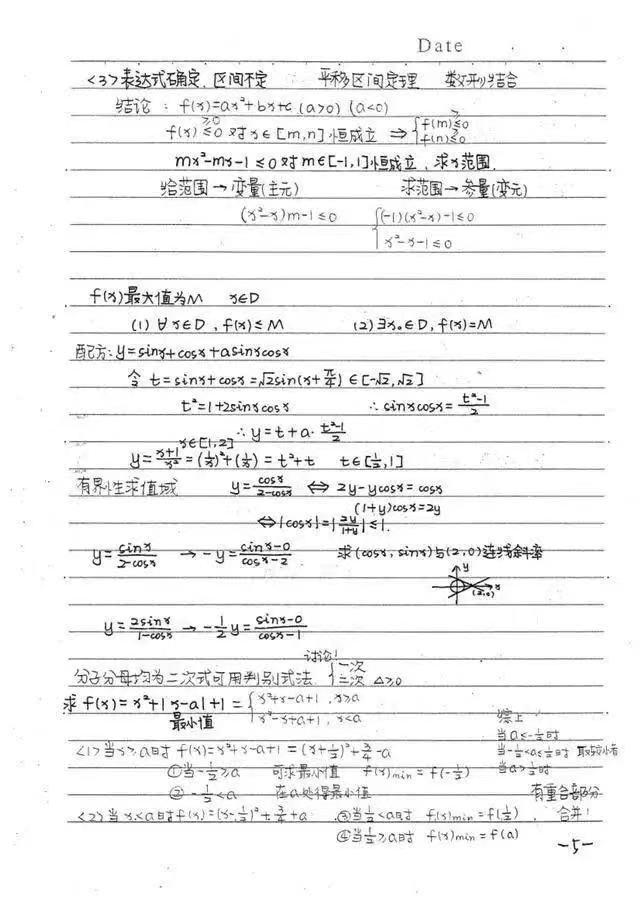 Date
<3>表达式确定,区间不定 平移区间定理 数形结合
结论: f(x)=ax²+bx+c (a>0) (a<0)
f(x) ≥0 ≤0 对x∈[m,n]恒成立 ⇒ {f(m)≥≤0 f(n)≥≤0
mx²-mx-1≤0对m∈[-1,1]恒成立,求x范围.
给范围→变量(主元) 求范围→参量(变元)
(x²-x)m-1≤0 {(-1)(x²-x)-1≤0
x²-x-1≤0
f(x)最大值为M x∈D
(1) ∀x∈D, f(x)≤M (2)∃x₀∈D, f(x)=M
配方: y=sinx+cosx+asinxcosx
令 t=sinx+cosx=√2sin(x+π/4)∈[-√2,√2]
t²=1+2sinxcosx ∴sinxcosx=(t²-1)/2
∴y=t+a·(t²-1)/2
x∈[1,2]
y=(x+1)/x²=(1/x)²+(1/x)=t²+t t∈[1/2,1]
有界性求值域 y=cosx/(2-cosx) ⇔ 2y-ycosx=cosx
(1+y)cosx=2y
⇔|cosx|=|2y/(1+y)|≤1.
y=sinx/(2-cosx) → -y=(sinx-0)/(cosx-2) 求(cosx,sinx)与(2,0)连线斜率
y
x
(2,0)
y=2sinx/(1-cosx) → -1/2y=(sinx-0)/(cosx-1)
讨论!
分子分母均为二次式可用判别式法. {一次 二次 △≥0
求 f(x)=x²+|x-a|+1={x²+x-a+1, x≥a
最小值 x²-x+a+1, x<a
综上
<1>当x≥a时 f(x)=x²+x-a+1=(x+1/2)²+3/4-a
当a≤-1/2时
当-1/2<a≤1/2时 取较小者
当a>1/2时
①当-1/2≥a 可求最小值 f(x)min=f(-1/2)
②-1/2<a 在a处得最小值
有重合部分,合并!
<2>当x<a时f(x)=(x-1/2)²+3/4+a ③当1/2<a时 f(x)min=f(1/2)
④当1/2≥a时 f(x)min=f(a)
-5-